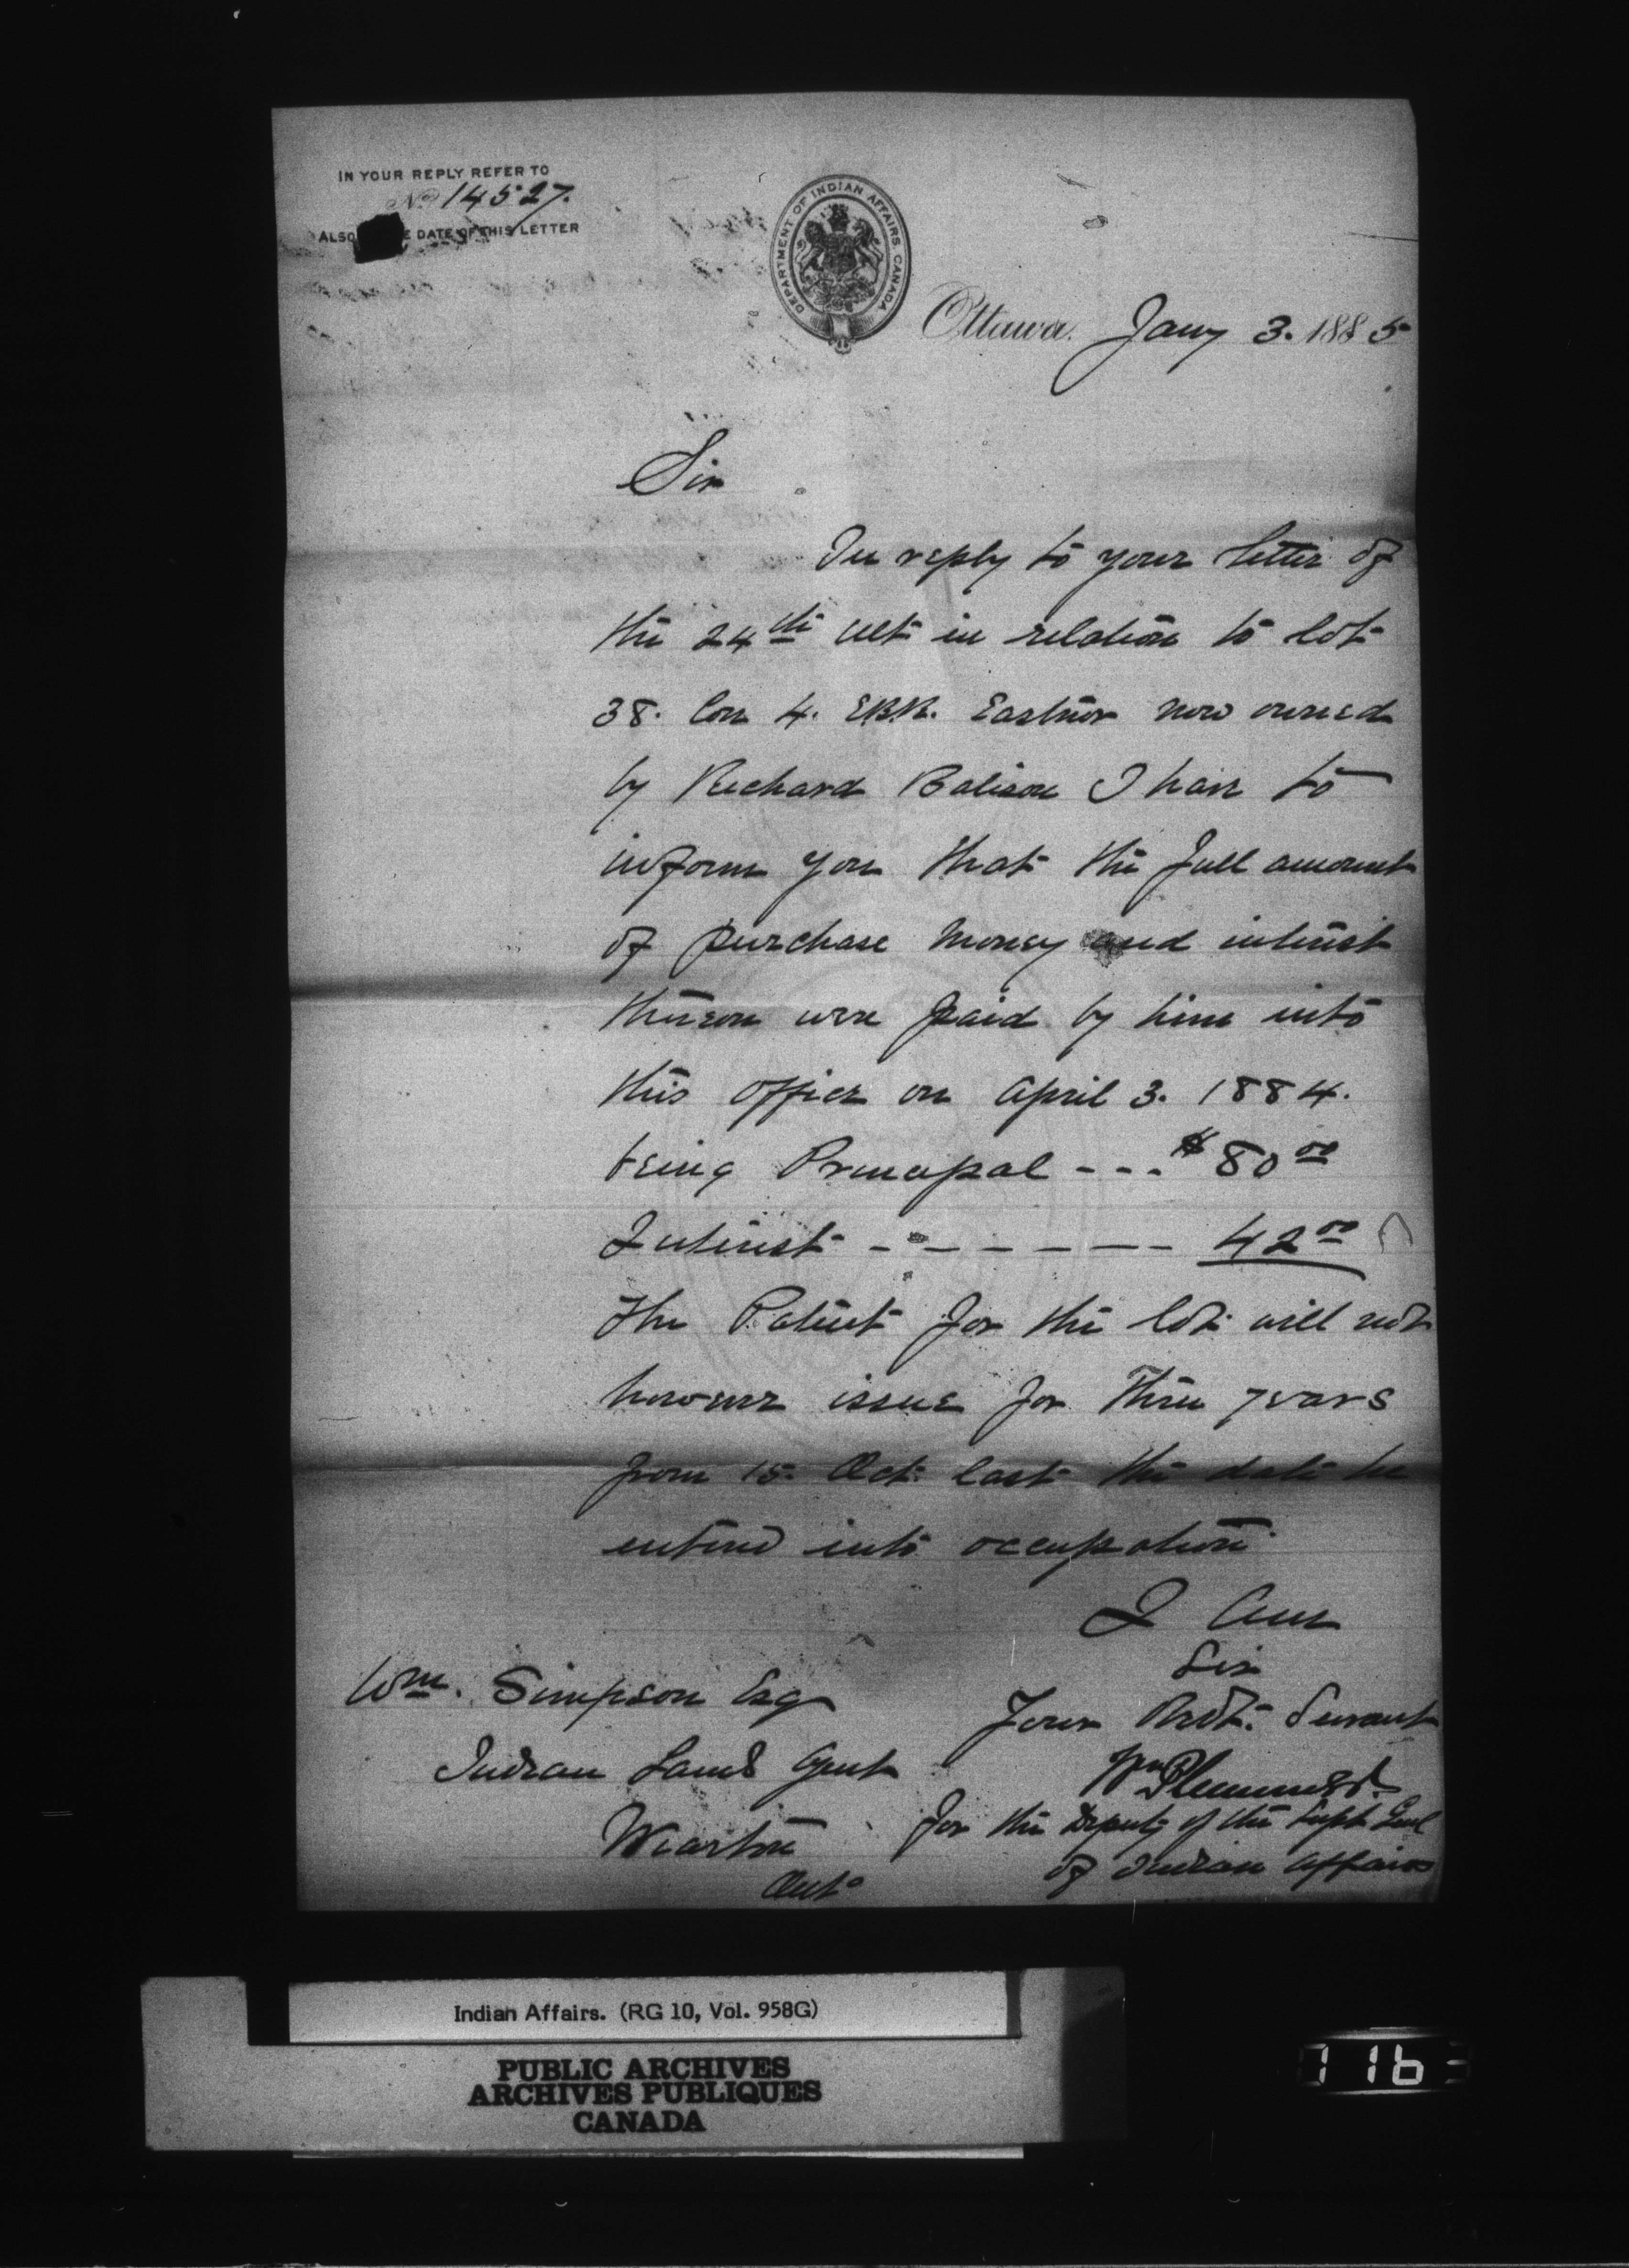 IN YOUR REPLY REFER TO
No 14527.
ALSO E DATE OF THIS LETTER
DEPARTMENT OF INDIAN AFFAIRS CANADA
Ottawa. Jany 3. 1885
Sir
In reply to your letter of
the 24th ult in relation to lot
38. Con 4. E.B.R. Eastnor now owned
by Richard I have to
inform you that the full amount
of purchase money and interest
thereon were paid by him into
this office on April 3. 1884.
being Principal - - - $80 00
Interest - - - - - - - 42 00
The Patent for the lot will not
however issue for three years
from 15. Oct. last the date he
entered into occupation
I am
Sir
Your Obdt. Servant
Wm Plummer
for the Deputy of the Supt Genl
of Indian Affairs
Wm. Simpson Esq
Indian Land Agent
Wiarton
Ont
Indian Affairs. (RG 10, Vol. 958G)
PUBLIC ARCHIVES
ARCHIVES PUBLIQUES
CANADA